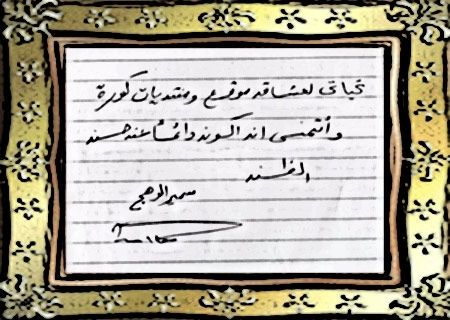 تحياتي لعشاق موقع ومنتديات كورة
وأتمنى ان اكون دائماً عند حسن
الظن
سمير